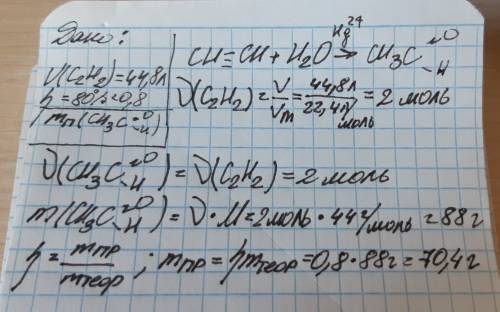 Дано:
V(C₂H₂)=44,8л
η=80%=0,8
mп(CH₃C=O-H)
CH≡CH + H₂O →Hg²⁺ CH₃C=O-H
ν(C₂H₂)=V/Vm=44,8л/22,4л/моль=2 моль
ν(CH₃C=O-H)=ν(C₂H₂)=2 моль
m(CH₃C=O-H)=ν·M=2моль·44г/моль=88г
η=mпр/mтеор; mпр=ηmтеор=0,8·88г=70,4г